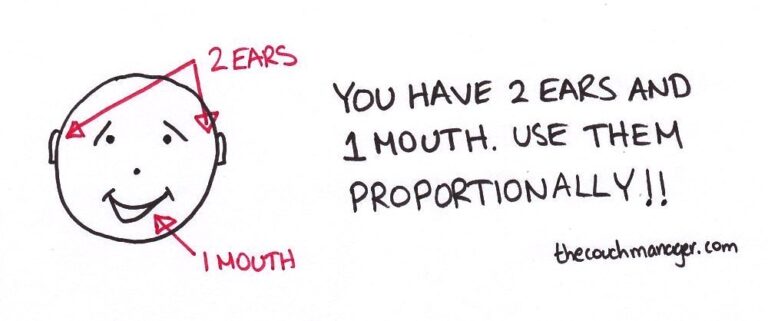 2 EARS
1 MOUTH
YOU HAVE 2 EARS AND
1 MOUTH. USE THEM
PROPORTIONALLY!!
thecouchmanager.com